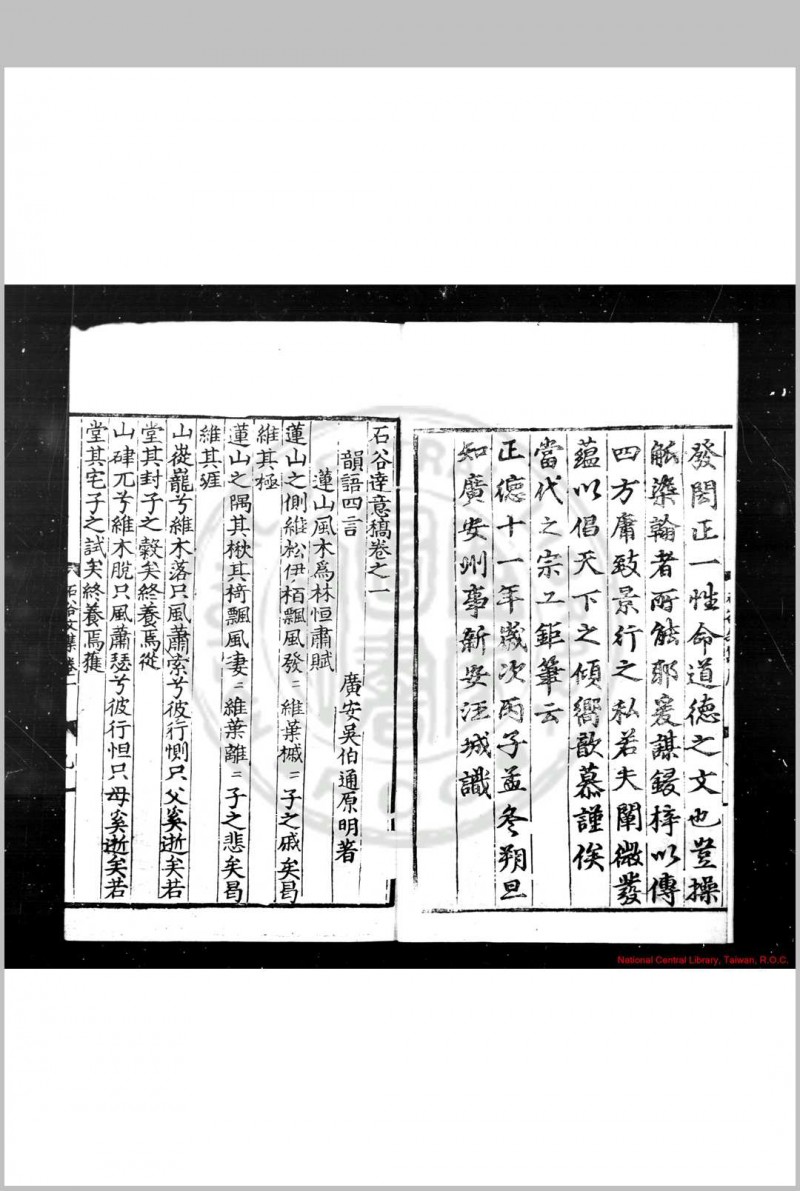 發閎正一性命道德之文也豈操
觚染翰者所能耶爰謀鋟梓以傳
四方庸致景行之私若夫闡微發
蘊以倡天下之傾嚮歆慕謹俟
當代之宗工鉅筆云
正德十一年歲次丙子孟冬朔旦
知廣安州事新安汪城識
石谷達意稿卷之一
廣安吳伯通原明著
韻語四言
蓮山風木爲林恒肅賦
蓮山之側維松伊栢飄風發〻維葉槭〻子之戚矣曷
維其極
蓮山之隅其楸其椅飄風凄〻維葉離〻子之悲矣曷
維其涯
山嵸巃兮維木落只風蕭索兮彼行惻只父奚逝矣若
堂其封子之穀矣終養焉從
山硉兀兮維木脫只風蕭瑟兮彼行怛只母奚逝矣若
堂其宅子之試矣終養焉獲
石谷文集卷一
九
National Central Library, Taiwan, R.O.C.